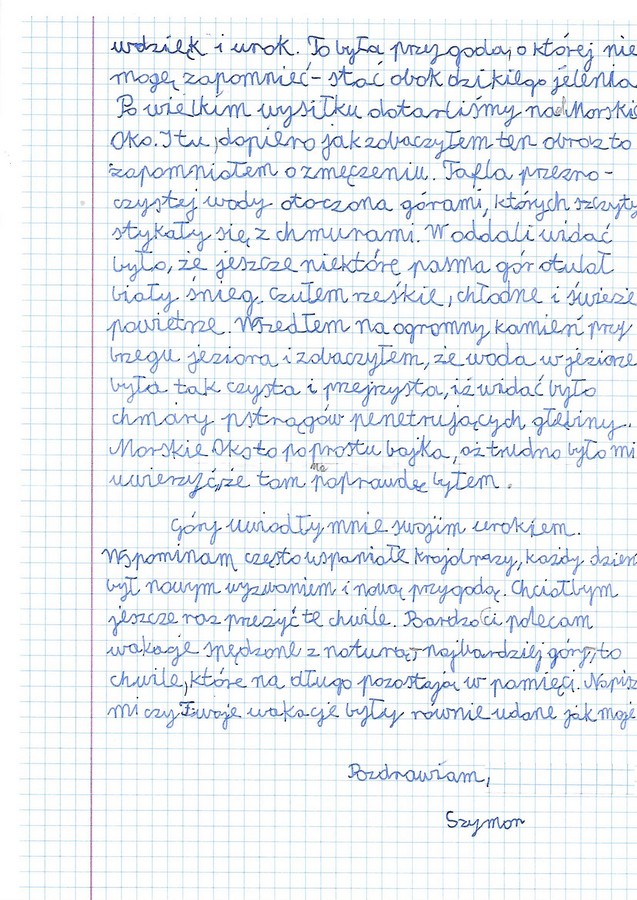 wdzięk i urok. To była przygoda, o której nie
mogę zapomnieć - stać obok dzikiego jelenia
Po wielkim wysiłku dotarliśmy nad Morskie
Oko. I tu, dopiero jak zobaczyłem ten obraz to
zapomniałem o zmęczeniu. Tafla przezro-
czystej wody otoczona górami, których szczyty
stykały się z chmurami. W oddali widać
było, że jeszcze niektóre pasma gór otulał
biały śnieg. czułem rześkie, chłodne i świeże
powietrze. Wszedłem na ogromny kamień przy
brzegu jeziora i zobaczyłem, że woda w jeziorze
była tak czysta i przejrzysta, iż widać było
chmary pstrągów penetrujących głębiny.
Morskie Oko to po prostu bajka, aż trudno było mi
uwierzyć, że tam na poprawdę byłem.
Góry uwiodły mnie swoim urokiem.
Wspominam często wspaniałe krajobrazy, każdy dzień
był nowym wyzwaniem i nową przygodą. Chciałbym
jeszcze raz przeżyć te chwile. Bardzo Ci polecam
wakacje spędzone z naturą, najbardziej góry, to
chwile, które na długo pozostają w pamięci. Napisz
mi czy Twoje wakacje były równie udane jak moje
Pozdrawiam,
Szymon